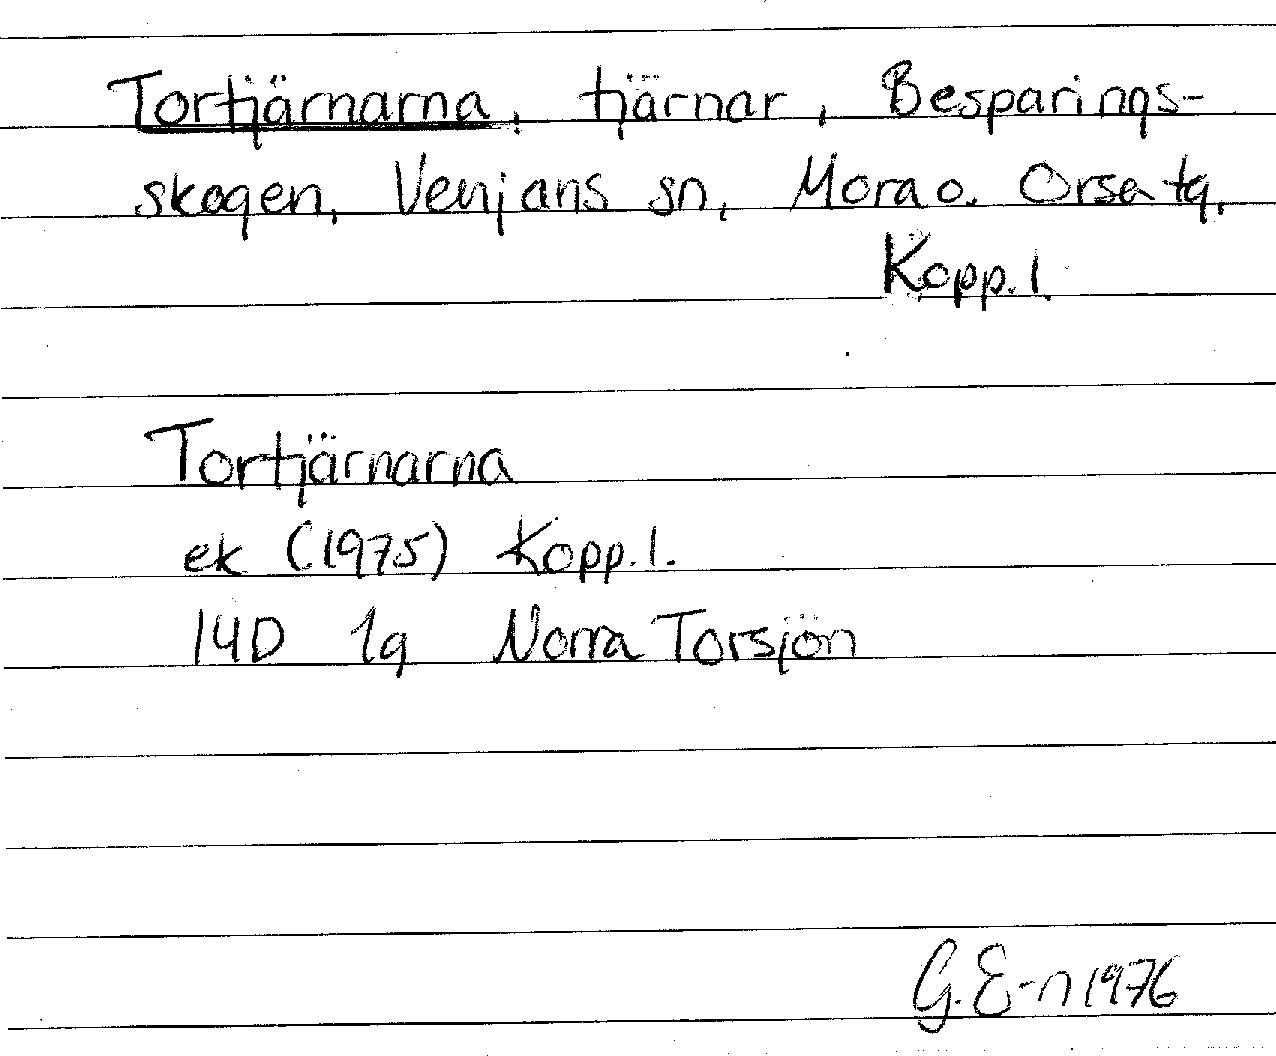 Tortjärnarna, tjärnar, Besparings-
skogen, Venjans sn, Mora o. Orsa tg,
Kopp. l.
Tortjärnarna
ek (1975) Kopp. l.
14D 1g Norra Torsjön
G. E-n 1976